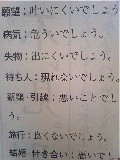 願望：叶いにくいでしょう
病気：危ういでしょう。
失物：出にくいでしょう。
待ち人：現れないでしょう
新築・引越：悪いことでし
ょう。
旅行：良くないでしょう。
結婚・付き合い：悪いでし